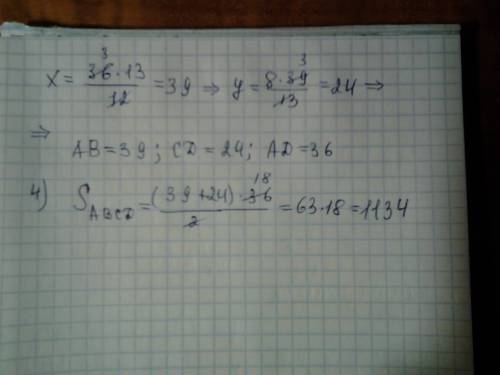 x = 36·13/12 = 39 ⇒ y = 8·39/13 = 24 ⇒
⇒
AB = 39; CD = 24; AD = 36
4) S_ABCD = (39+24)·36/2 = 63·18 = 1134